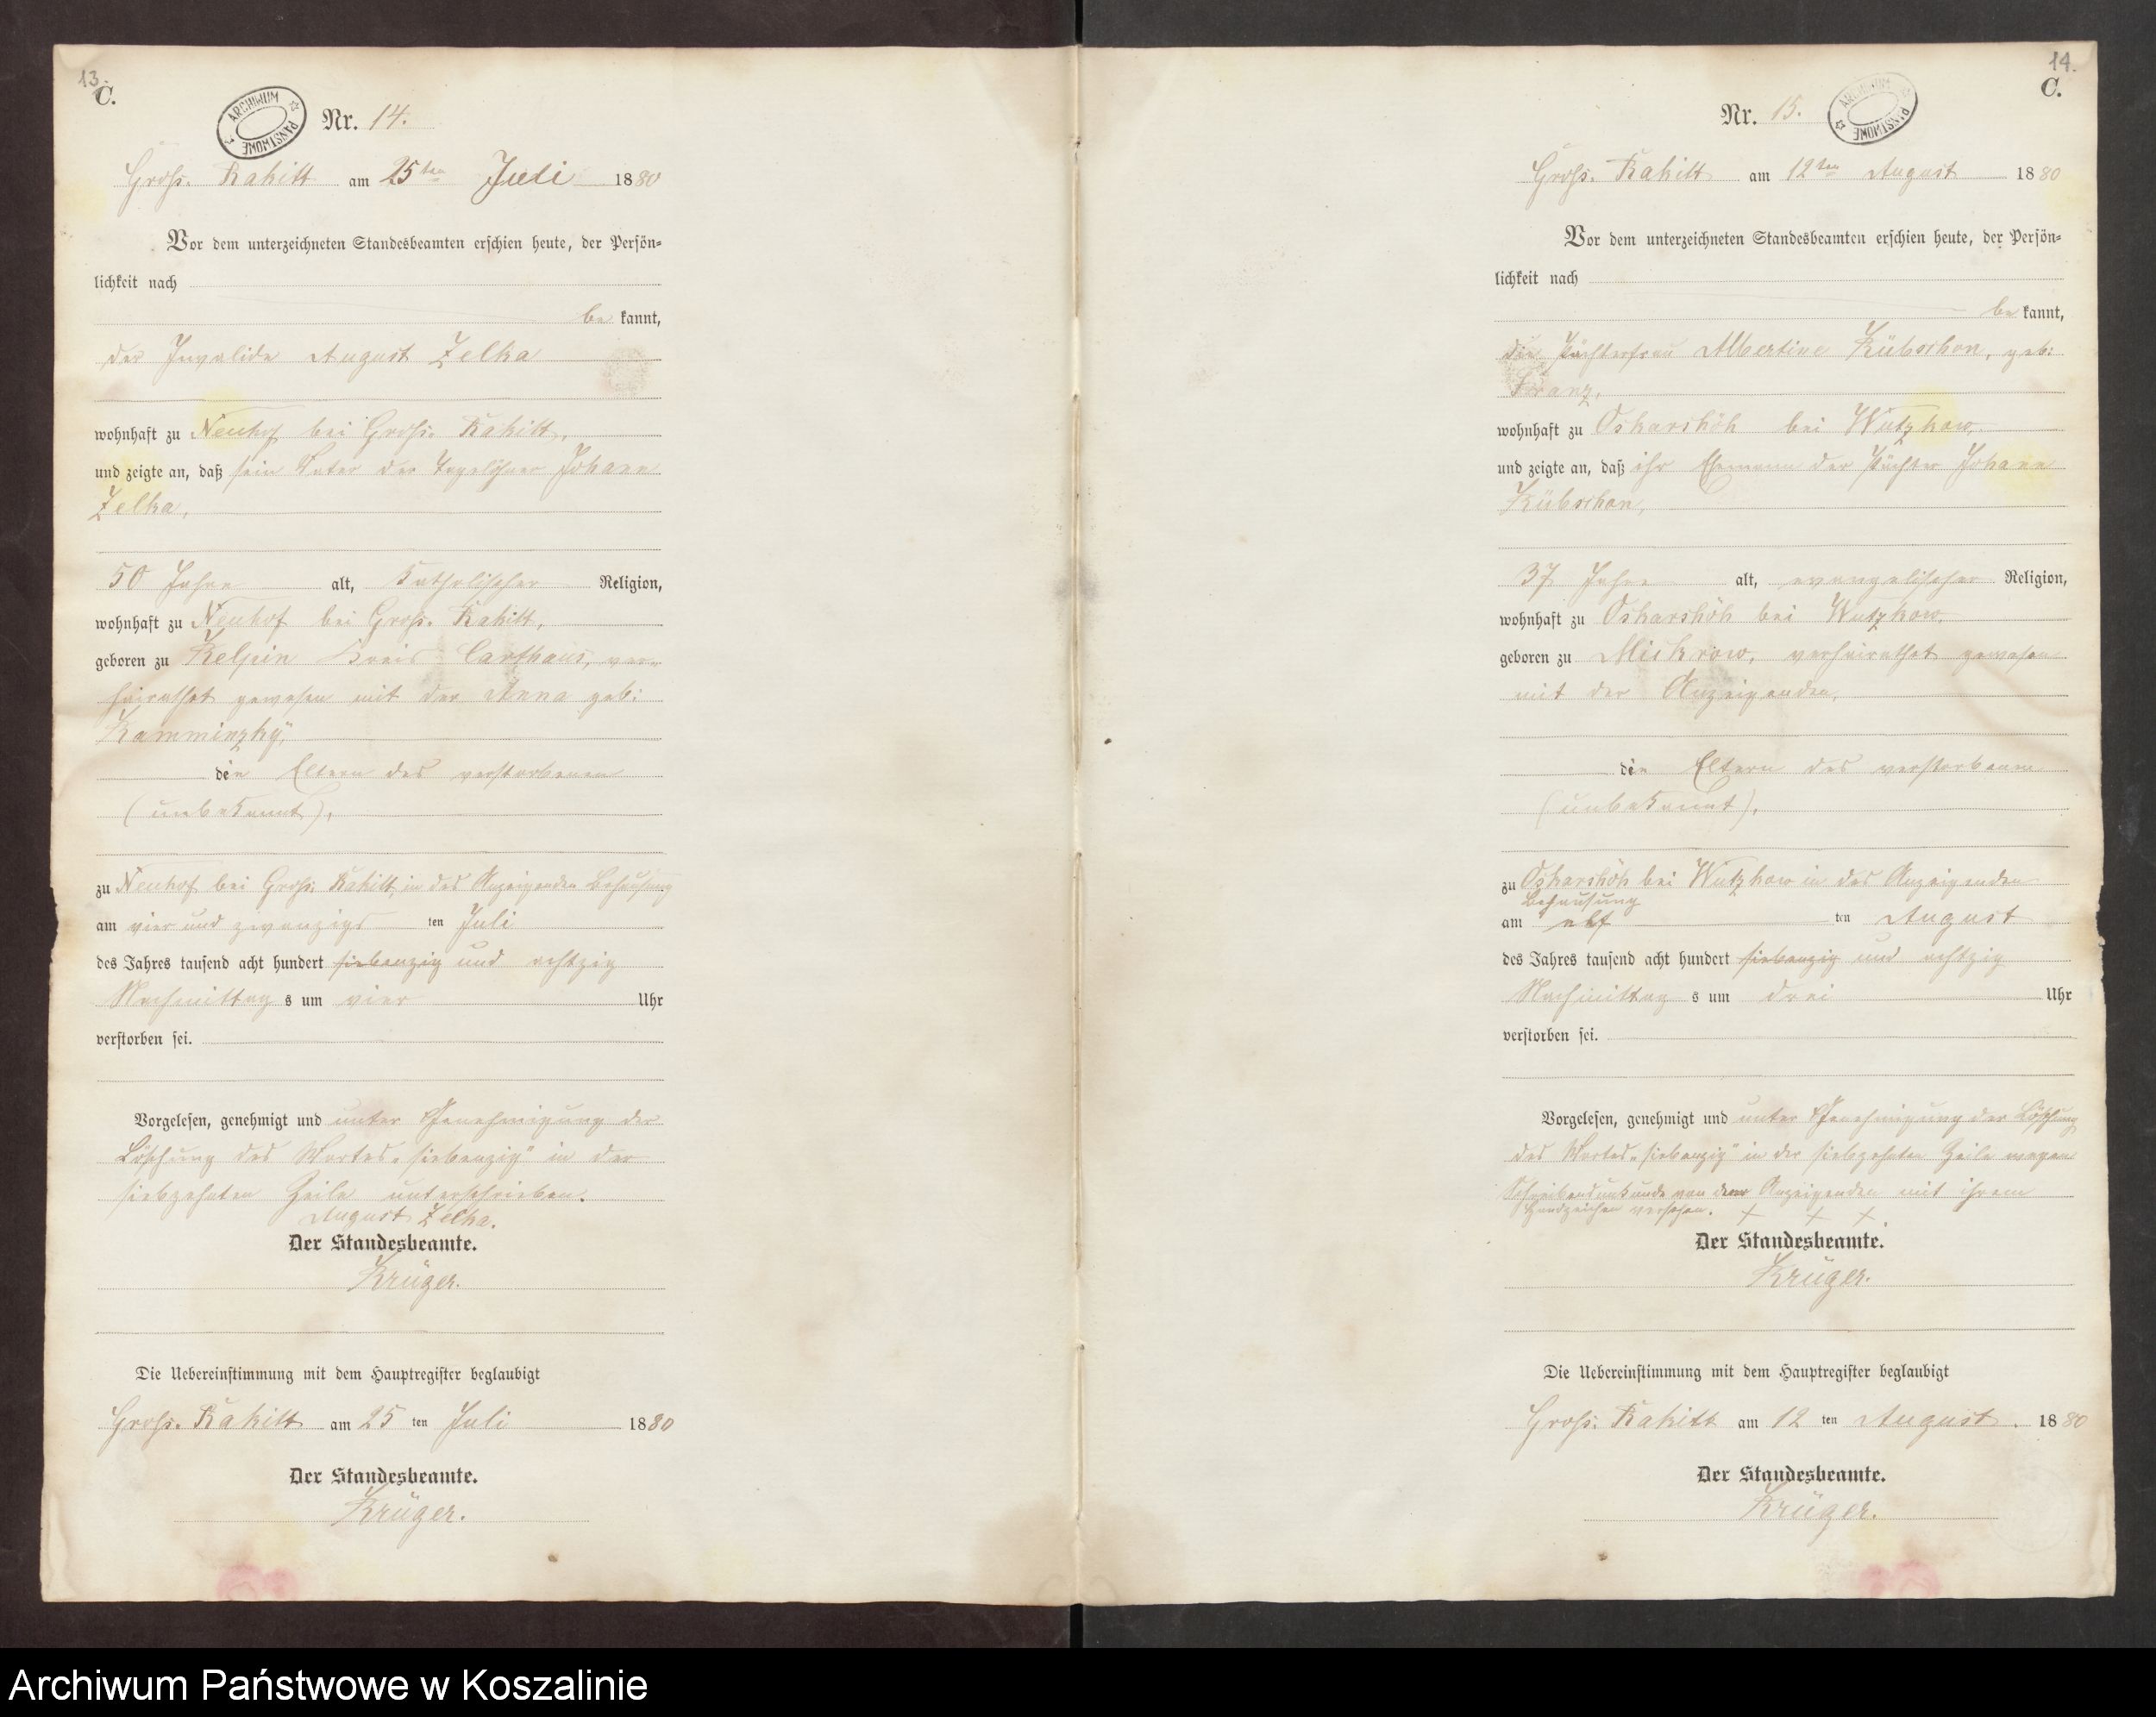 13.
C.
ARCHIWUM PAŃSTWOWE
Nr. 14.
Groß. Rakitt am 25ten Juli 1880
Vor dem unterzeichneten Standesbeamten erschien heute, der Persön-
lichkeit nach
be kannt,
der Invalide August Zelka
wohnhaft zu Neuhof bei Groß. Rakitt,
und zeigte an, daß sein Vater der Tagelöhner Johann
Zelka,
50 Jahre alt, Katholischer Religion,
wohnhaft zu Neuhof bei Groß. Rakitt,
geboren zu Kelpin Kreis Carthaus, ver-
heirathet gewesen mit der Anna geb:
Kamminzky,
die Eltern des verstorbenen
(unbekannt),
zu Neuhof bei Groß. Rakitt, in des Anzeigenden Behausung
am vier und zwanzigs ten Juli
des Jahres tausend acht hundert siebenzig und achtzig
Nachmittag s um vier Uhr
verstorben sei.
Vorgelesen, genehmigt und unter Genehmigung der
Löschung des Wortes „siebenzig" in der
siebzehnten Zeile unterschrieben.
August Zelka.
Der Standesbeamte.
Krüger.
Die Uebereinstimmung mit dem Hauptregister beglaubigt
Groß. Rakitt am 25 ten Juli 1880
Der Standesbeamte.
Krüger.
14.
C.
ARCHIWUM PAŃSTWOWE
Nr. 15.
Groß. Rakitt am 12ten August 1880
Vor dem unterzeichneten Standesbeamten erschien heute, der Persön-
lichkeit nach
be kannt,
die Pächterfrau Albertine Kübschon, geb:
Franz,
wohnhaft zu Oskarshöh bei Wutzkow,
und zeigte an, daß ihr Ehemann der Pächter Johann
Kübschon,
37 Jahre alt, evangelischer Religion,
wohnhaft zu Oskarshöh bei Wutzkow,
geboren zu Mickrow, verheirathet gewesen
mit der Anzeigenden,
die Eltern des verstorbenen
(unbekannt),
zu Oskarshöh bei Wutzkow in des Anzeigenden
Behausung
am elf ten August
des Jahres tausend acht hundert siebenzig und achtzig
Nachmittag s um drei Uhr
verstorben sei.
Vorgelesen, genehmigt und unter Genehmigung der Löschung
des Wortes „siebenzig" in der siebzehnten Zeile wegen
Schreibensunkunde von der Anzeigenden mit ihrem
Handzeichen versehen. + + +
Der Standesbeamte.
Krüger.
Die Uebereinstimmung mit dem Hauptregister beglaubigt
Groß. Rakitt am 12 ten August. 1880
Der Standesbeamte.
Krüger.
Archiwum Państwowe w Koszalinie